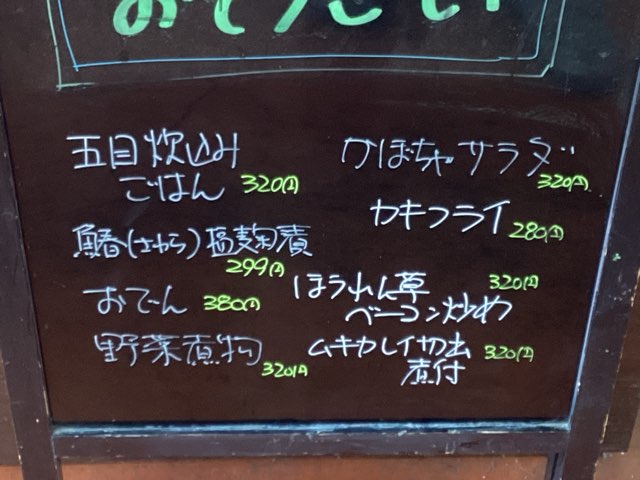 五目炊込み
ごはん 320円
鰆(さわら)塩麹漬
299円
おでん 380円
野菜煮物
320円
かぼちゃサラダ
320円
カキフライ 280円
ほうれん草 320円
ベーコン炒め
ムキカレイ切出 320円
煮付